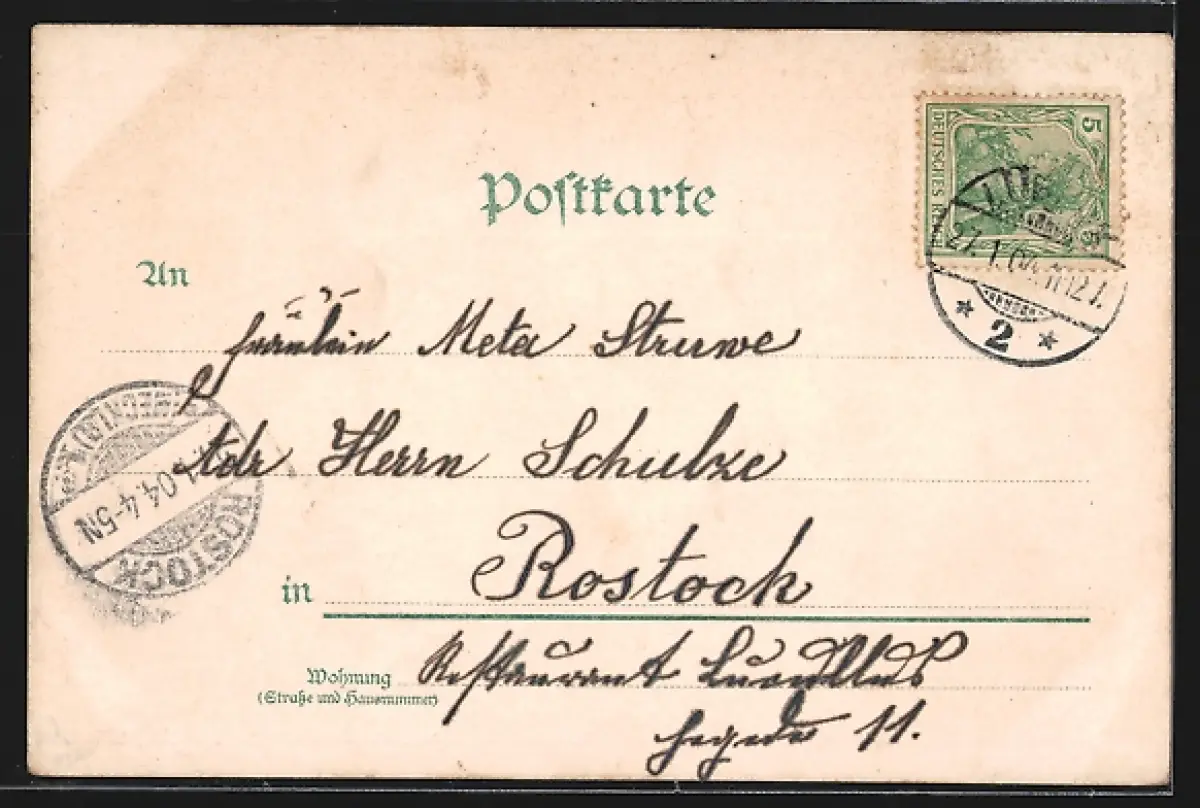 Postkarte
5 DEUTSCHES REICH 5
27.1.04. 11-12 V.
* 2 *
An
Fräulein Meta Struwe
Adr Herrn Schulze
ROSTOCK
1.04. 4-5N
in Rostock
Wohnung Restaurant
(Straße und Hausnummer)
11.